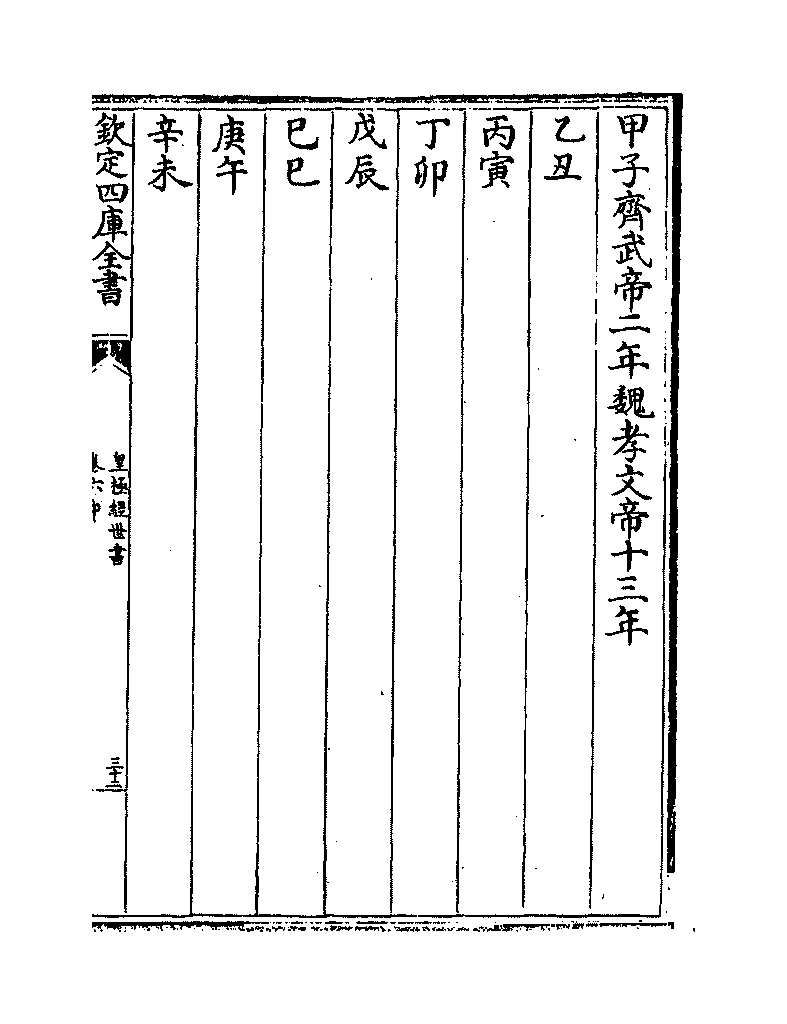 甲子齊武帝二年魏孝文帝十三年
乙丑
丙寅
丁卯
戊辰
己巳
庚午
辛未
欽定四庫全書
皇極經世書
卷六中
三十二